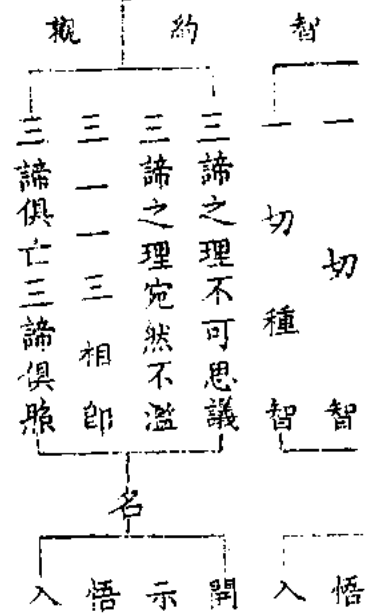 智
一切智
一切種智
悟
入
約
觀
三諦之理不可思議
三諦之理宛然不濫
三一一三相即
三諦俱亡三諦俱照
名
開
示
悟
入